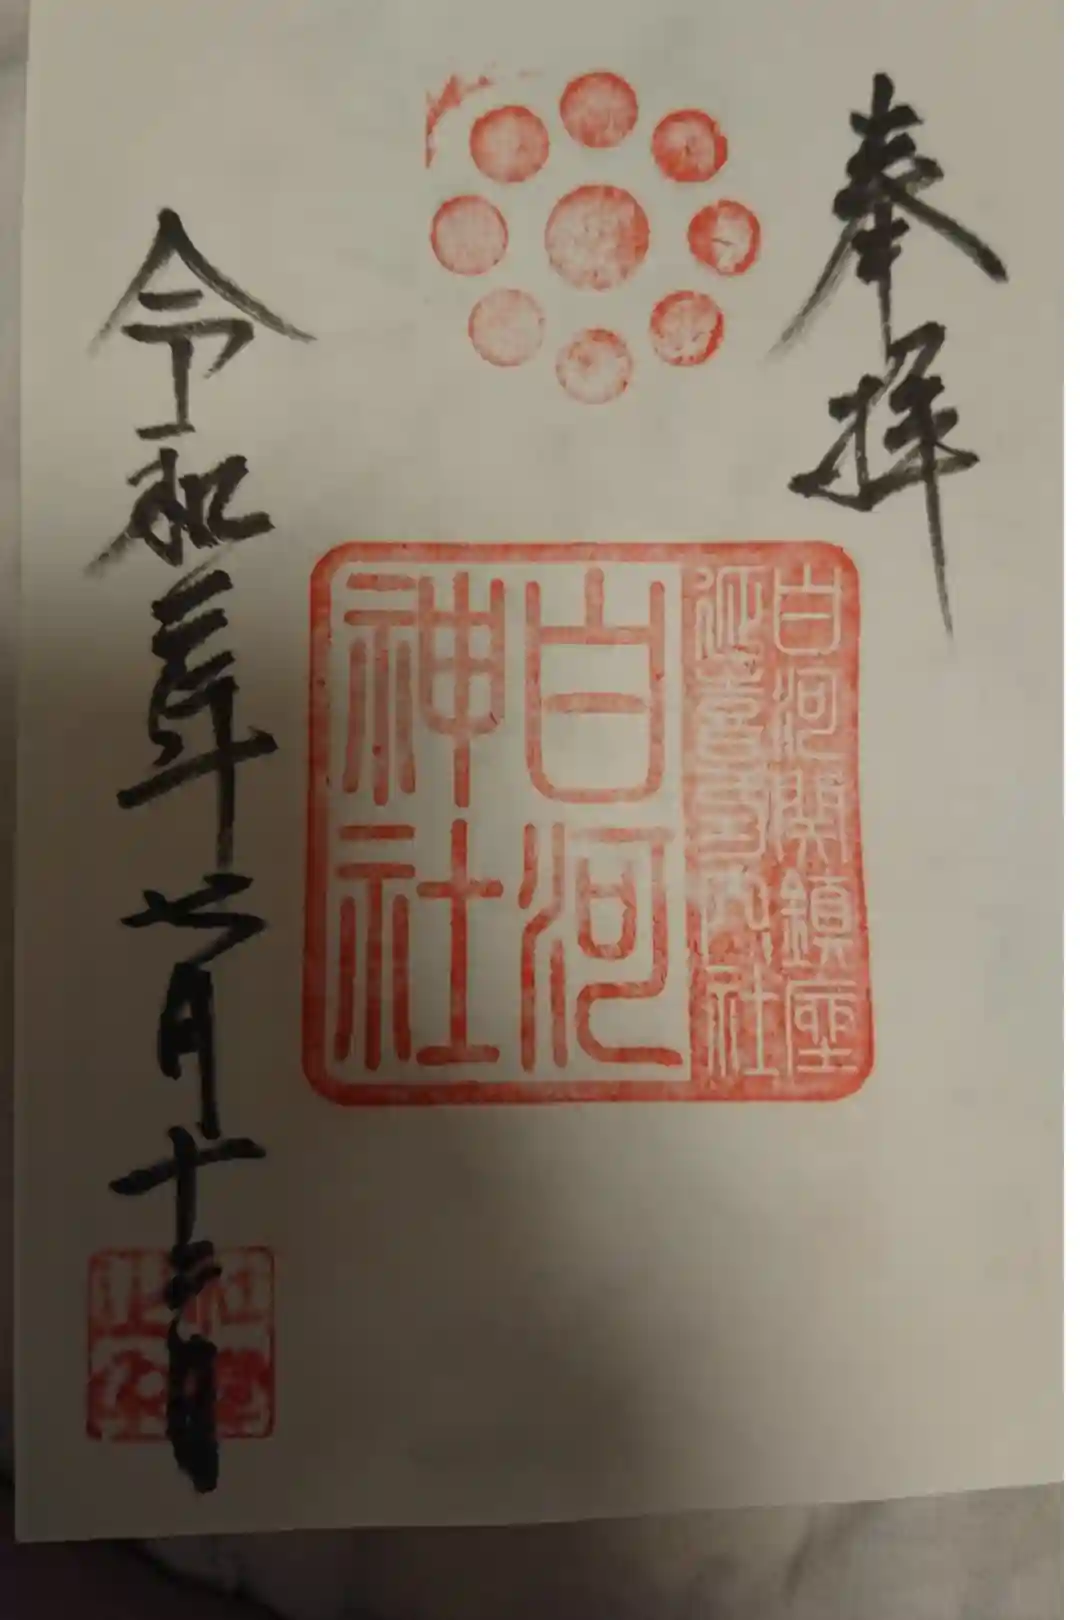 奉拝
白河関鎮座
延喜式内社
白河
神社
令和三年七月十二日